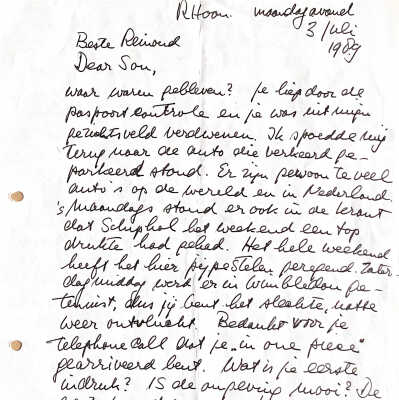 RHoon. maandagavond
3 juli
1989
Beste Reinoud
Dear Son,
waar waren gebleven? Je liep door de
paspoort controle en je was uit mijn
gezichtsveld verdwenen. Ik spoedde mij
terug naar de auto die verkeerd ge-
parkeerd stond. Er zijn gewoon te veel
auto's op de wereld en in Nederland.
's Maandags stond er ook in de krant
dat Schiphol het weekend een top
drukte had gehad. Het hele weekend
heeft het hier pijpestelen geregend. Zater-
dagmiddag werd er in Wimbledon ge-
tennist, dus jij bent het slechte, natte
weer ontvlucht. Bedankt voor je
telephone call dat je „in one piece"
gearriveerd bent. Wat is je eerste
indruk? IS de omgeving mooi? De